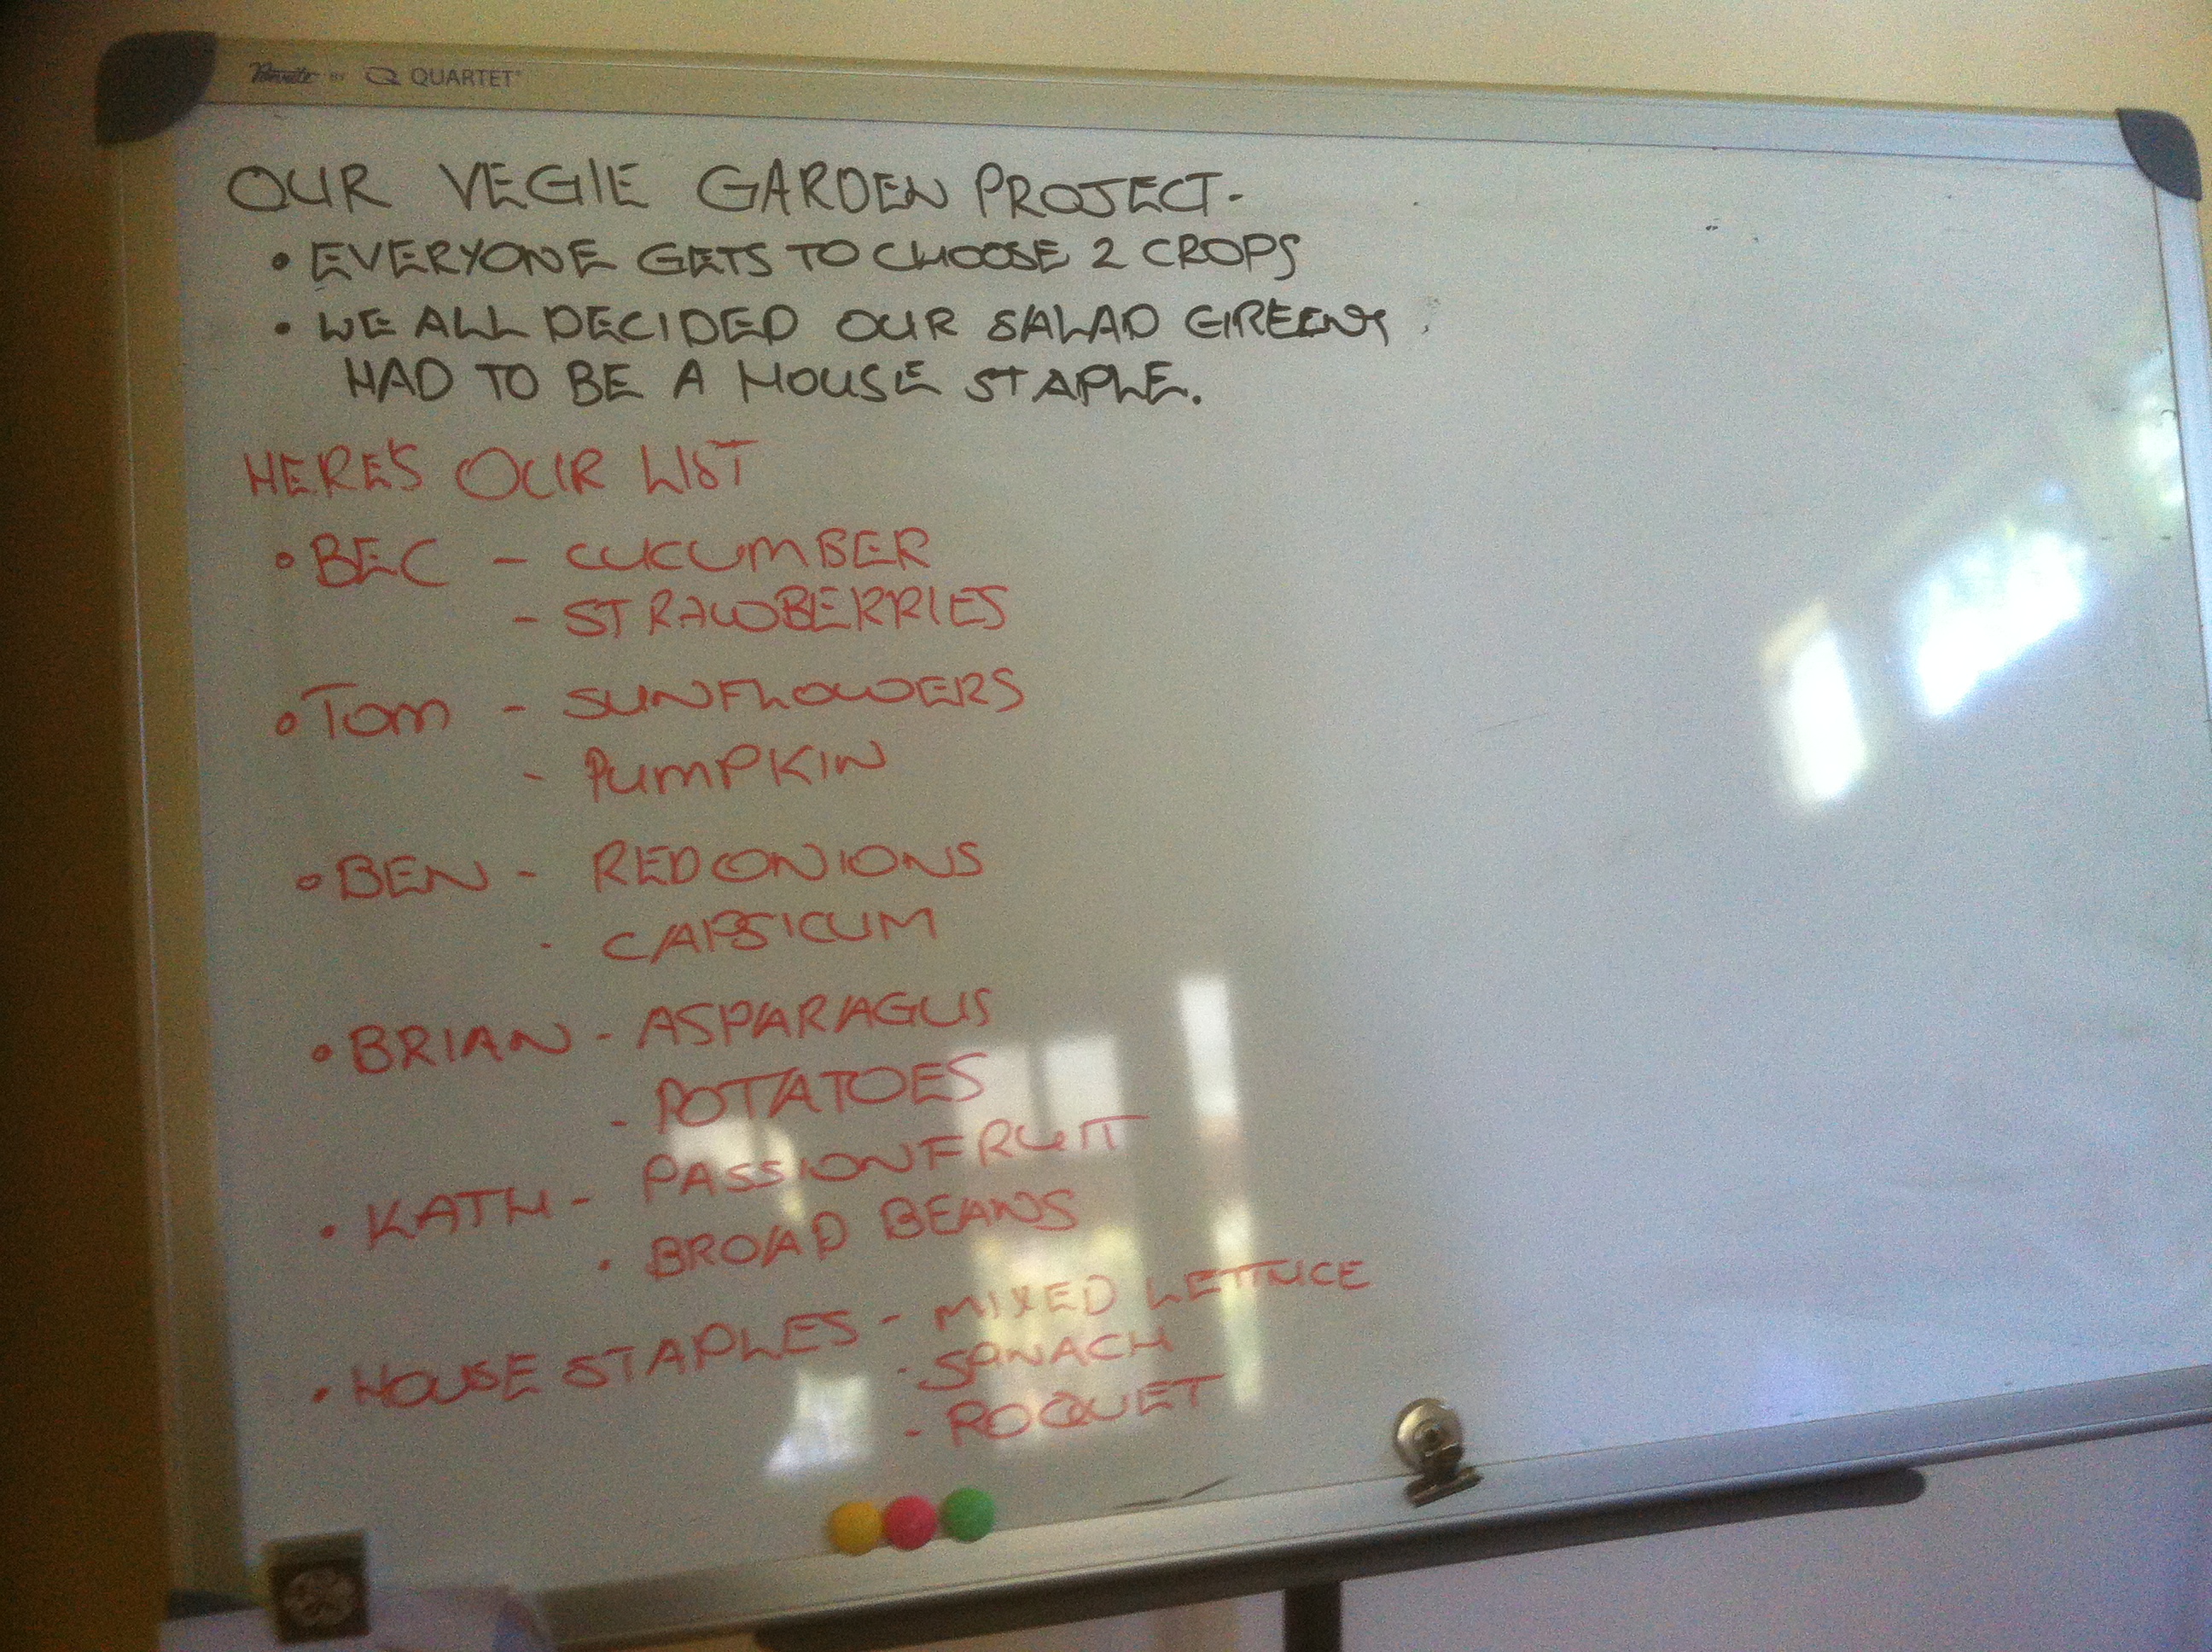 BY QUARTET
OUR VEGIE GARDEN PROJECT-
• EVERYONE GETS TO CHOOSE 2 CROPS
• WE ALL DECIDED OUR SALAD GREENS
HAD TO BE A HOUSE STAPLE.
HERE'S OUR LIST
• BEC - CUCUMBER
- STRAWBERRIES
• TOM - SUNFLOWERS
- PUMPKIN
• BEN - RED ONIONS
- CAPSICUM
• BRIAN - ASPARAGUS
- POTATOES
• KATH - PASSIONFRUIT
• BROAD BEANS
• HOUSE STAPLES - MIXED LETTUCE
- SPINACH
- ROCQUET